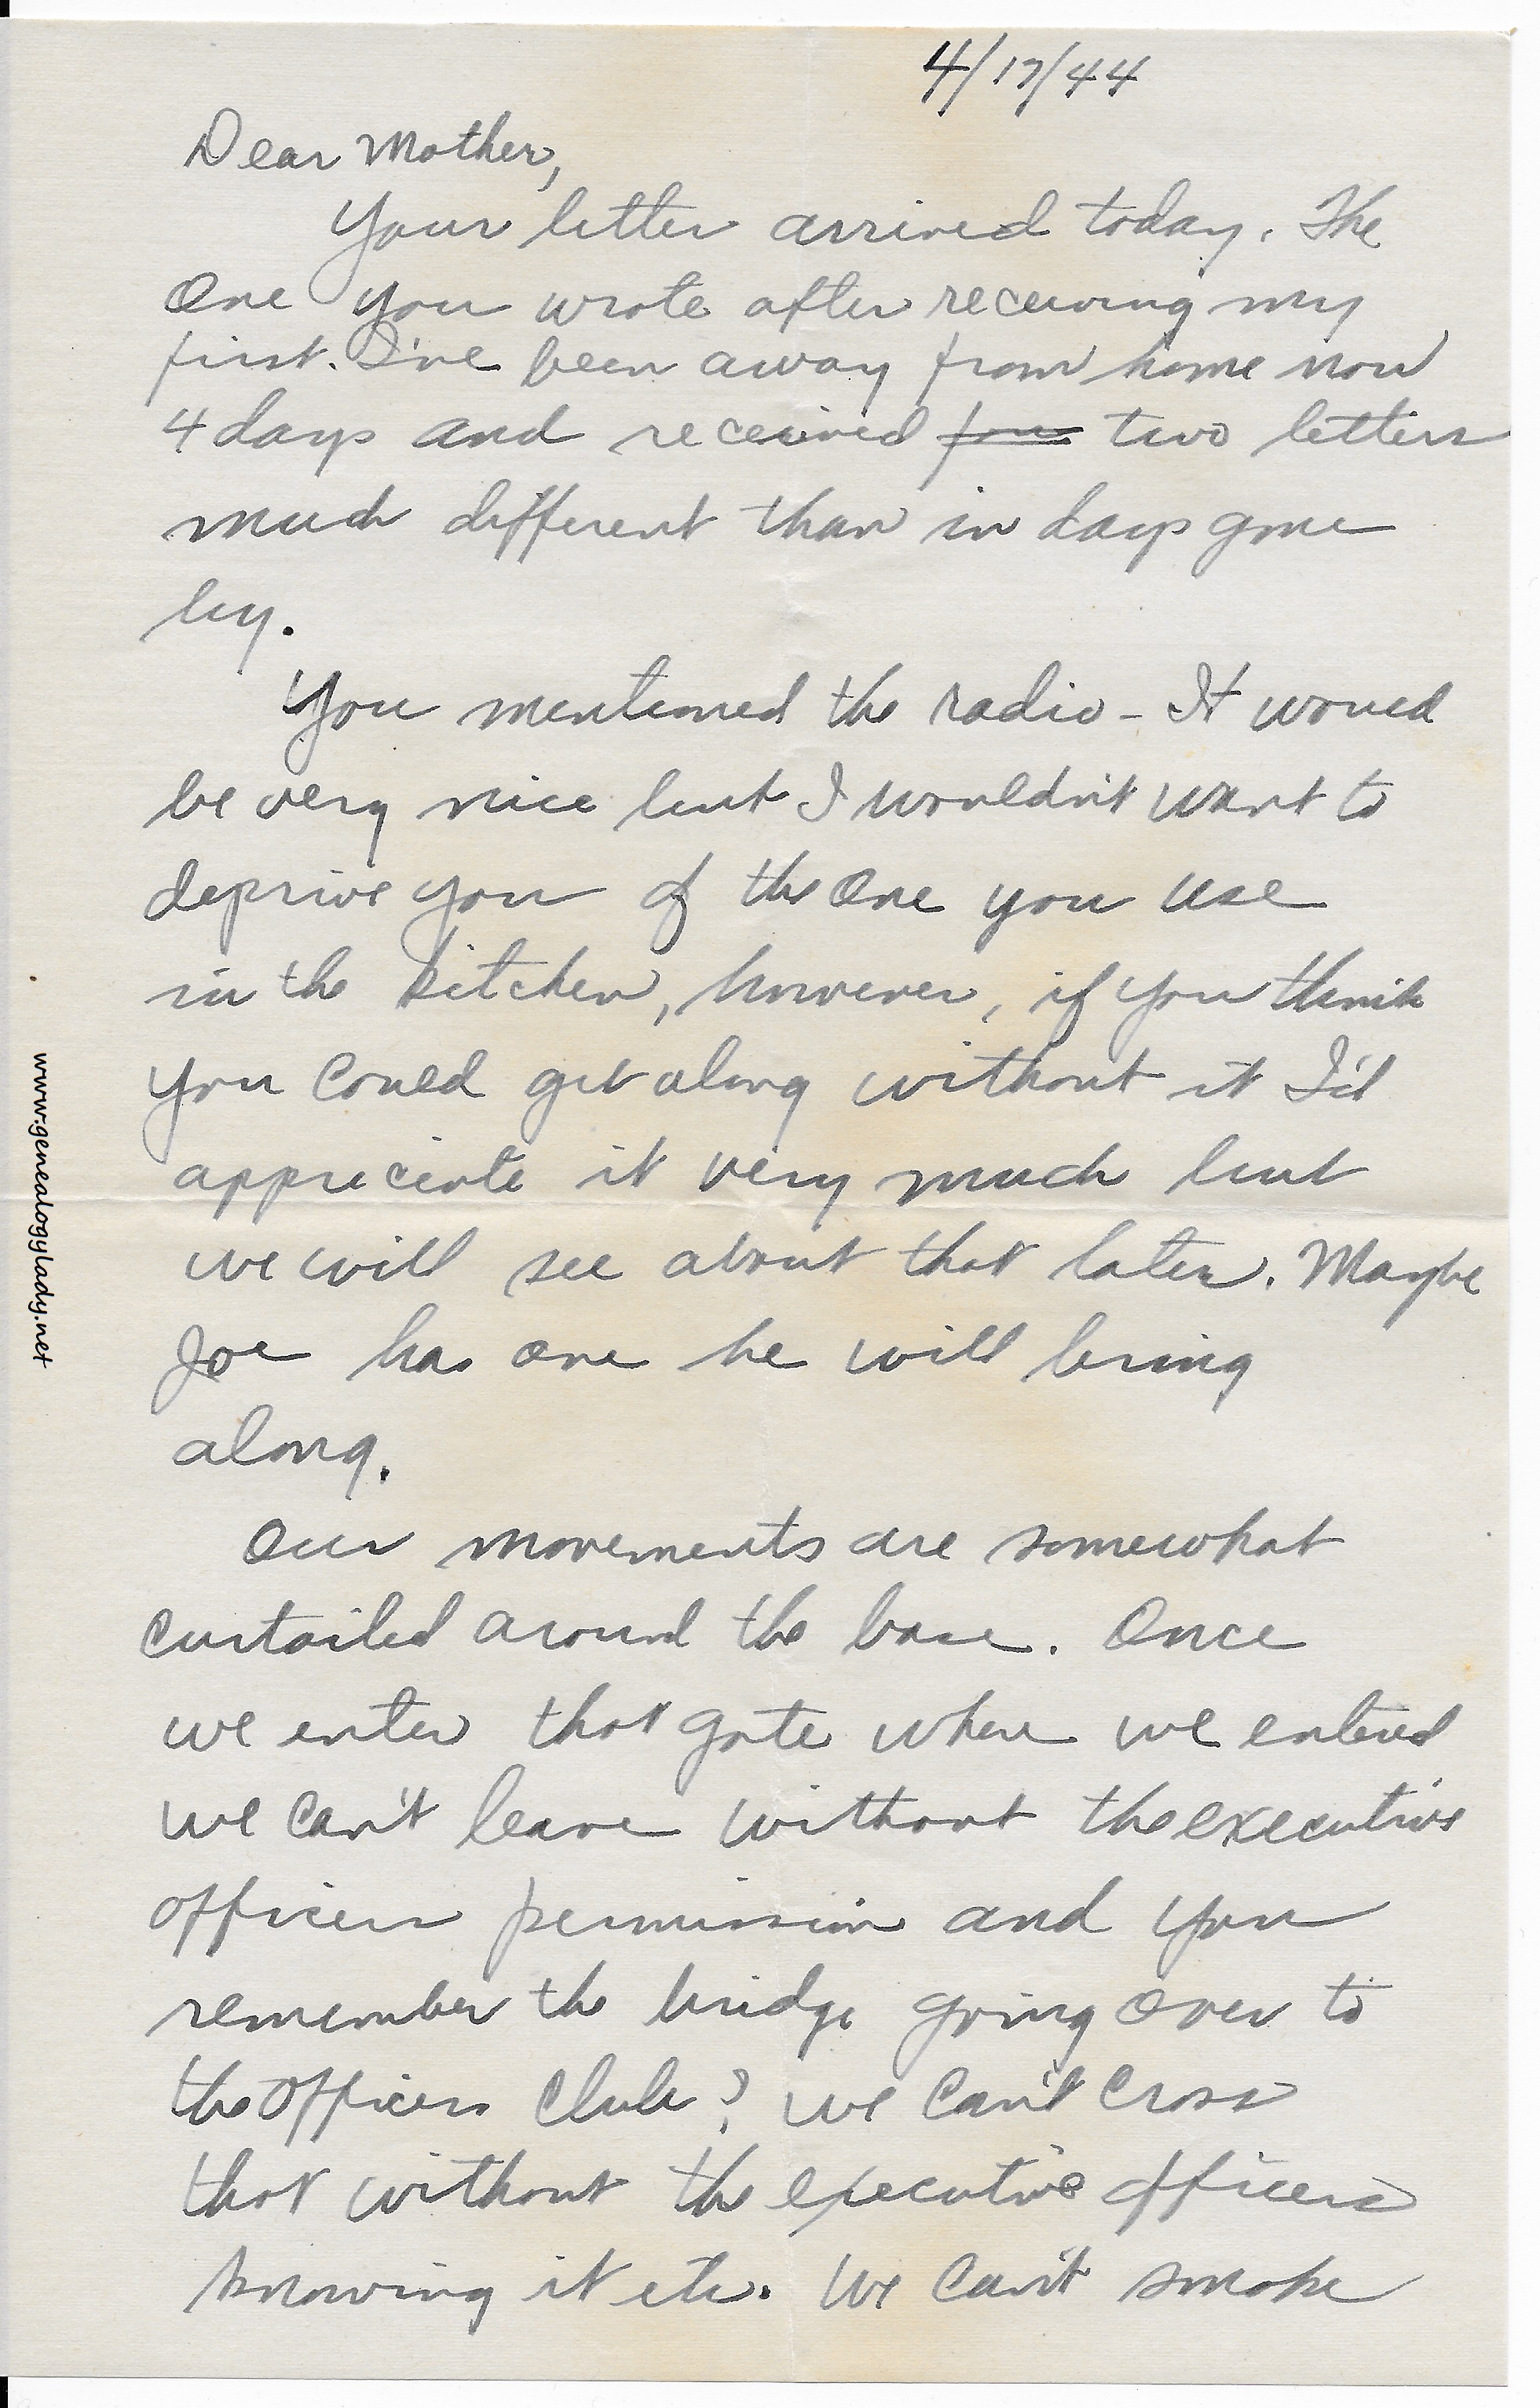 4/17/44
Dear Mother,
Your letter arrived today. The
one you wrote after receiving my
first. I've been away from home now
4 days and received two letters
much different than in days gone
by.
You mentioned the radio - It would
be very nice but I wouldn't want to
deprive you of the one you use
in the kitchen, however, if you think
you could get along without it I'd
appreciate it very much but
we will see about that later. Maybe
Joe has one he will bring
along.
Our movements are somewhat
curtailed around the base. Once
we enter that gate where we entered
we can't leave without the executive
officers permission and you
remember the bridge going over to
the Officers Club? We can't cross
that without the executive officers
knowing it etc. We can't smoke
www.genealogylady.net